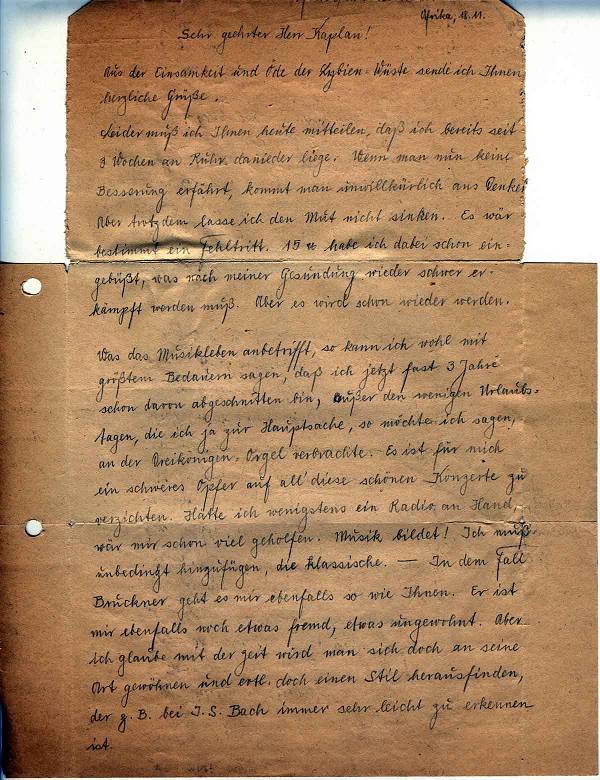 Afrika, 18.11.
Sehr geehrter Herr Kaplan!
Aus der Einsamkeit und Öde der Lybien-Wüste sende ich Ihnen
herzliche Grüße.
Leider muß ich Ihnen heute mitteilen, daß ich bereits seit
3 Wochen an Ruhr danieder liege. Wenn man nun keine
Besserung erfährt, kommt man unwillkürlich ans Denken
Aber trotzdem lasse ich den Mut nicht sinken. Es wär
bestimmt ein Fehltritt. 15 habe ich dabei schon ein=
gebüßt, was nach meiner Gesundung wieder schwer er-
kämpft werden muß. Aber es wird schon wieder werden.
Was das Musikleben anbetrifft, so kann ich wohl mit
größtem Bedauern sagen, daß ich jetzt fast 3 Jahre
schon davon abgeschnitten bin, außer den wenigen Urlaubs-
tagen, die ich ja zur Hauptsache, so möchte ich sagen,
an der Dreikönigen-Orgel verbrachte. Es ist für mich
ein schweres Opfer auf all' diese schönen Konzerte zu
verzichten. Hätte ich wenigstens ein Radio an Hand,
wär mir schon viel geholfen. Musik bildet! Ich muß
unbedingt hinzufügen, die klassische. — In dem Fall
Bruckner geht es mir ebenfalls so wie Ihnen. Er ist
mir ebenfalls noch etwas fremd, etwas ungewohnt. Aber
ich glaube mit der Zeit wird man sich doch an seine
Art gewöhnen und evtl. doch einen Stil herausfinden,
der z. B. bei J. S. Bach immer sehr leicht zu erkennen
ist.